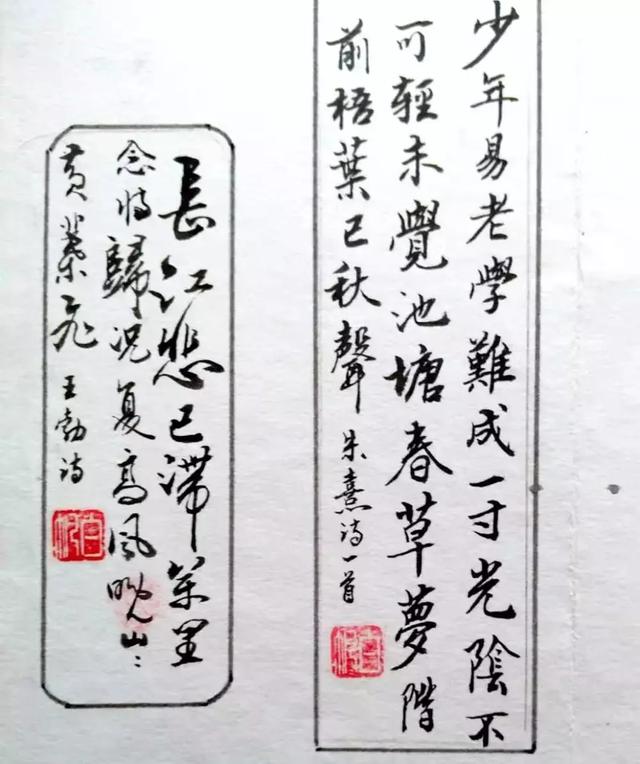 少年易老學難成一寸光陰不
可輕未覺池塘春草夢階
前梧葉已秋聲 朱熹诗一首
長江悲已滯萬里
念将歸况复高風晚山〻
黄葉飛 王勃诗